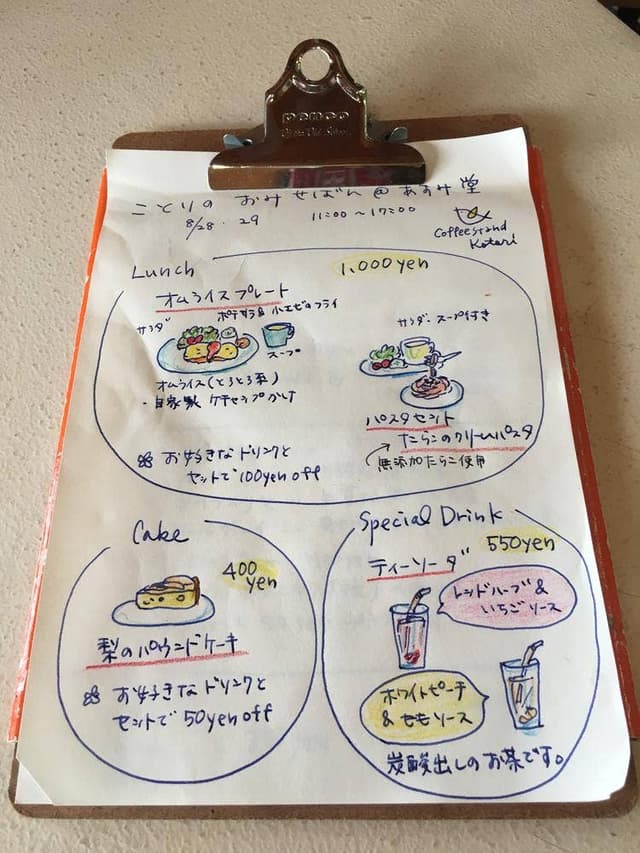 penco
ことりの おみせばん@あすみ堂
8/28・29 11:00〜17:00
Coffeestand
Kotori
Lunch 1,000yen
オムライスプレート
ポテサラ& 小エビのフライ
サラダ
スープ
オムライス(とろとろ系)
・自家製 ケチャップかけ
サラダ・スープ付き
パスタセット
たらこのクリームパスタ
無添加たらこ使用
お好きなドリンクと
セットで100yen off
Cake
400
yen
梨のパウンドケーキ
お好きなドリンクと
セットで 50yen off
Special Drink
550yen
ティーソーダ
レッドハーブ&
いちごソース
ホワイトピーチ
& ももソース
炭酸出しのお茶です。